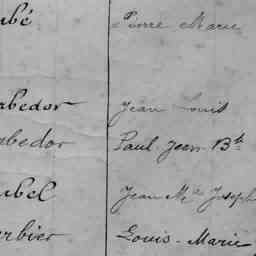 ubé Pierre Marie
abedor Jean Louis
abedor Paul Jean Bte
ubel Jean Mie Joseph
rbier Louis-Marie